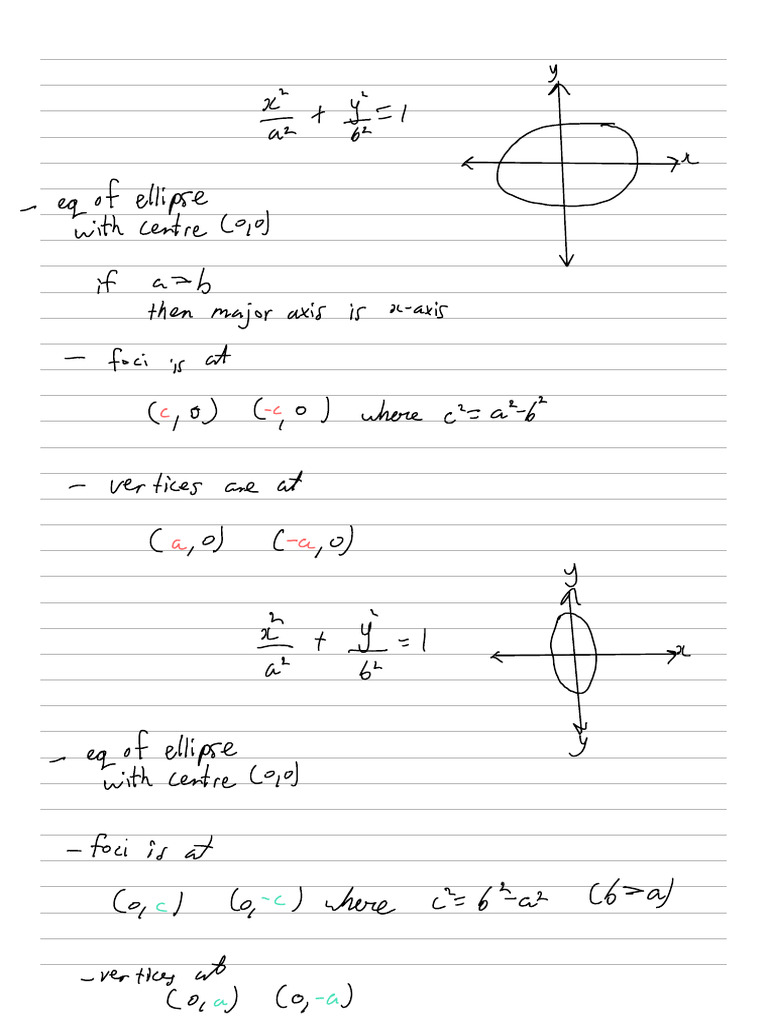 x²/a² + y²/b² = 1
y
x
- eq of ellipse
with centre (0,0)
if a > b
then major axis is x-axis
- foci is at
(c, 0) (-c, 0) where c² = a² - b²
- vertices are at
(a, 0) (-a, 0)
x²/a² + y²/b² = 1
y
x
y
- eq of ellipse
with centre (0,0)
- foci is at
(0, c) (0, -c) where c² = b² - a² (b > a)
- vertices at
(0, a) (0, -a)